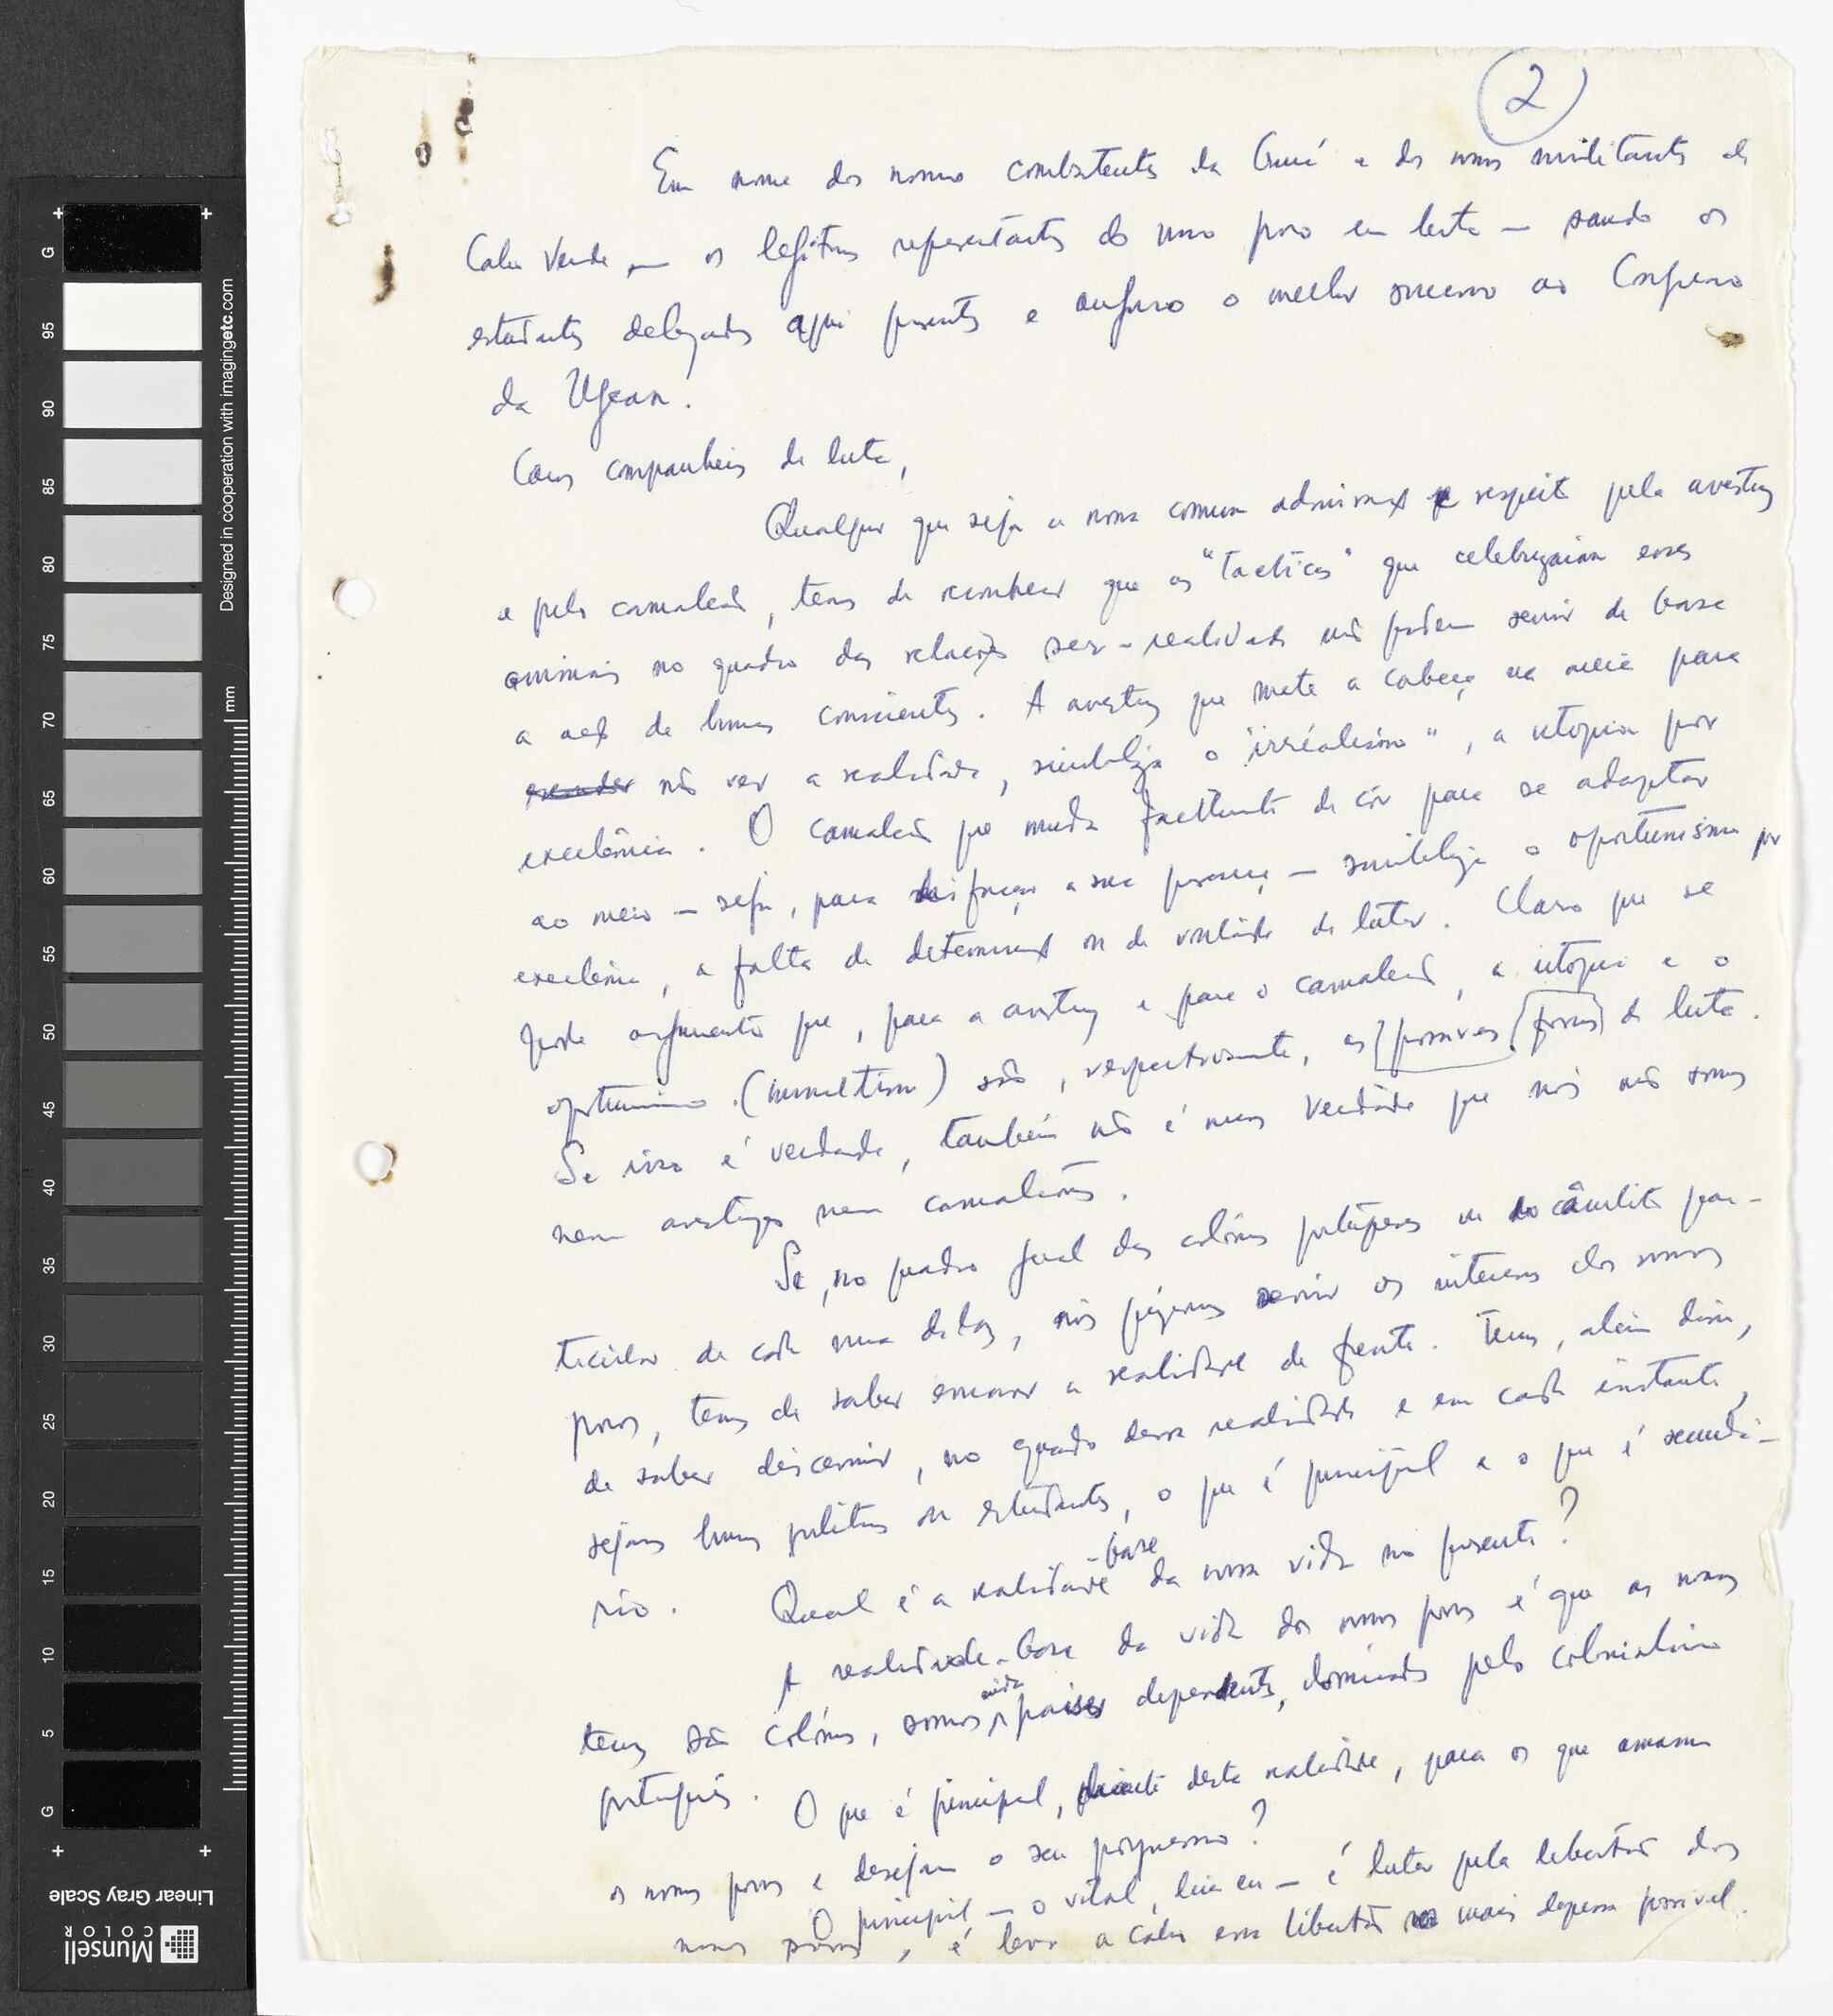 2
Em nome dos nossos combatentes da Guiné e dos nossos militantes de
Cabo Verde — os legítimos representantes do nosso povo em luta — saúdo os
estudantes delegados aqui presentes e auguro o melhor sucesso ao Congresso
da Ugean.
Caros companheiros de luta,
Qualquer que seja a nossa comum admiração e respeito pela avestruz
e pelo camaleão, temos de reconhecer que as "tacticas" que celebrizaram esses
animais no quadro das relações ser-realidade não podem servir de base
a acção de homens conscientes. A avestruz que mete a cabeça na areia para
não ver a realidade, simboliza o "irréalismo", a utopia por
excelência. O camaleão que muda facilmente de côr para se adaptar
ao meio — seja, para disfarçar a sua presença — simboliza o oportunismo por
excelência, a falta de determinação ou de vontade de lutar. Claro que se
pode argumentar que, para a avestruz e para o camaleão, a utopia e o
oportunismo (mimetismo) são, respectivamente, as possíveis formas de luta.
Se isso é verdade, também não é menos verdade que nós não somos
nem avestruzes nem camaleões.
Se, no quadro geral das colónias portuguesas ou no âmbito par-
ticular de cada uma delas, nós quizermos servir os interesses dos nossos
povos, temos de saber encarar a realidade de frente. Temos, além disso,
de saber discernir, no quadro dessa realidade e em cada instante,
sejamos homens politicos ou estudantes, o que é principal e o que é secundá-
rio. Qual é a realidade-base da nossa vida no presente?
A realidade-base da vida dos nossos povos é que as nossas
terras são colónias, somos ainda paises dependentes, dominados pelo colonialismo
português. O que é principal, diante desta realidade, para os que amam
os nossos povos e desejam o seu progresso?
O principal — o vital, diria eu — é lutar pela libertação dos
nossos povos, é levar a cabo essa libertação o mais depressa possivel.
Linear Gray Scale
Munsell
COLOR
Designed in cooperation with imagingetc.com
mm
G
95
90
85
80
75
70
65
60
55
50
45
40
35
30
25
20
15
10
5
G